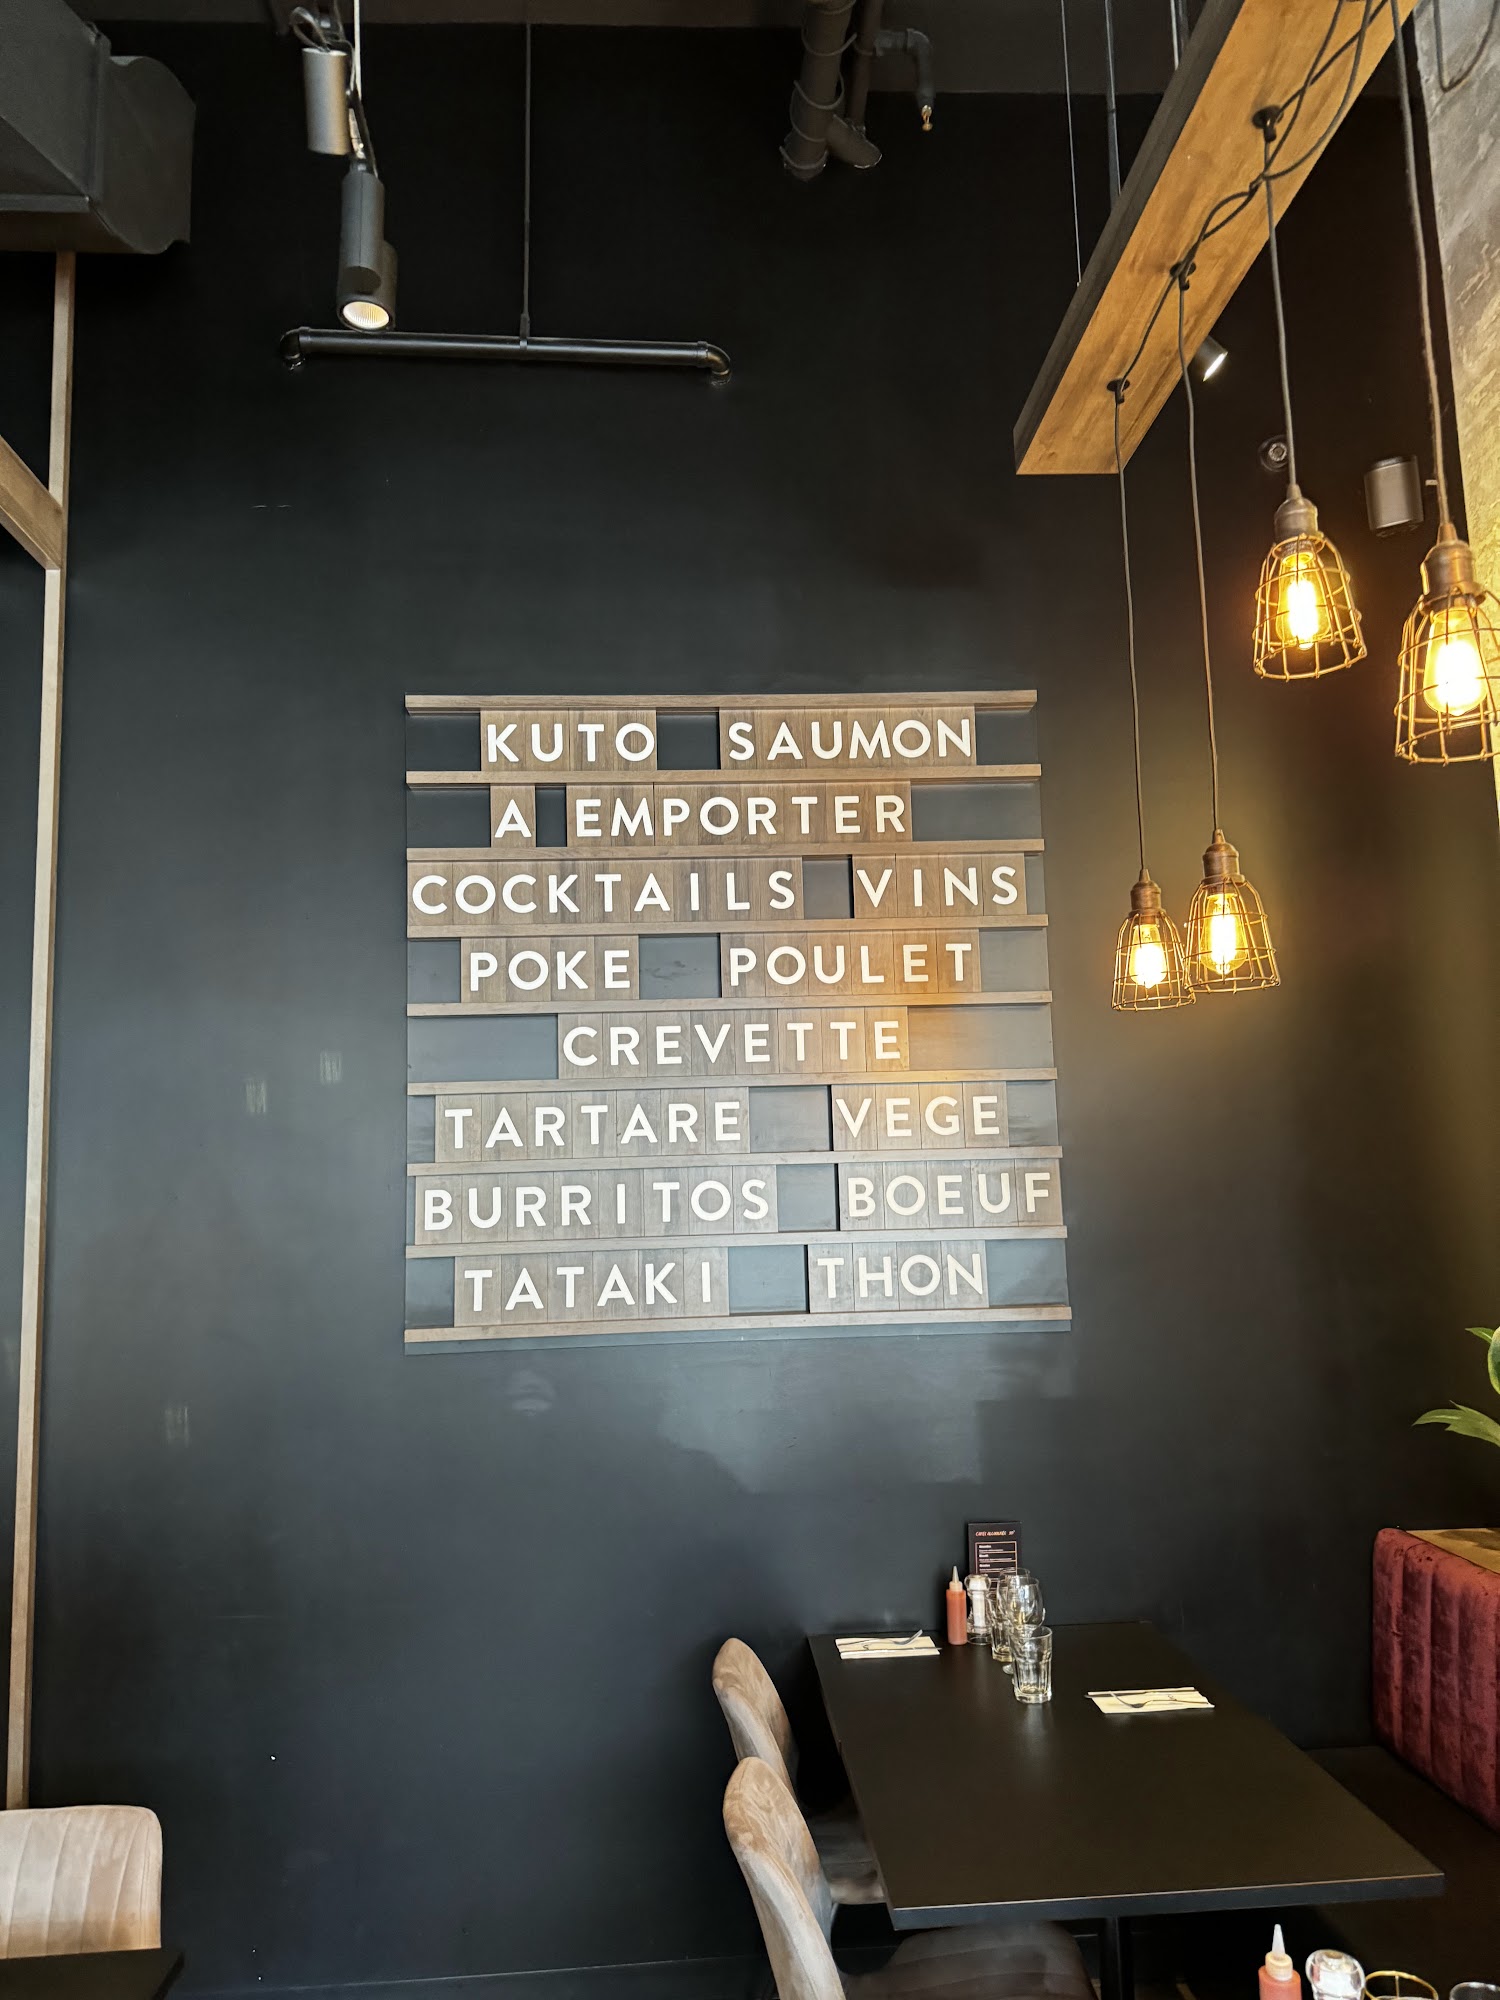 KUTO SAUMON
A EMPORTER
COCKTAILS VINS
POKE POULET
CREVETTE
TARTARE VEGE
BURRITOS BOEUF
TATAKI THON